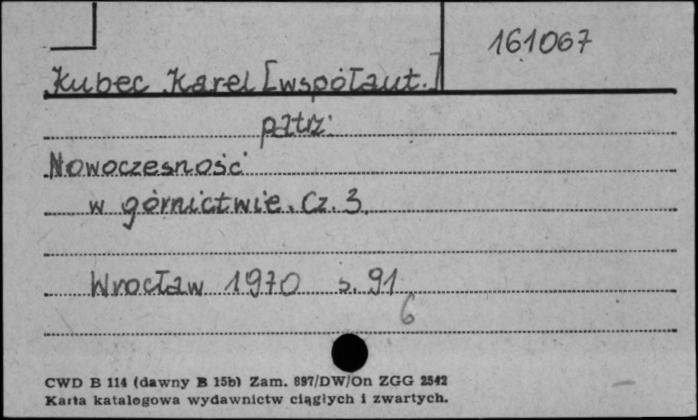 161067
Kubec Karel [współaut.]
patrz:
Nowoczesność
w górnictwie. Cz. 3.
Wrocław 1970 s. 91
6
CWD B 114 (dawny B 15b) Zam. 897/DW/On ZGG 2542
Karta katalogowa wydawnictw ciągłych i zwartych.